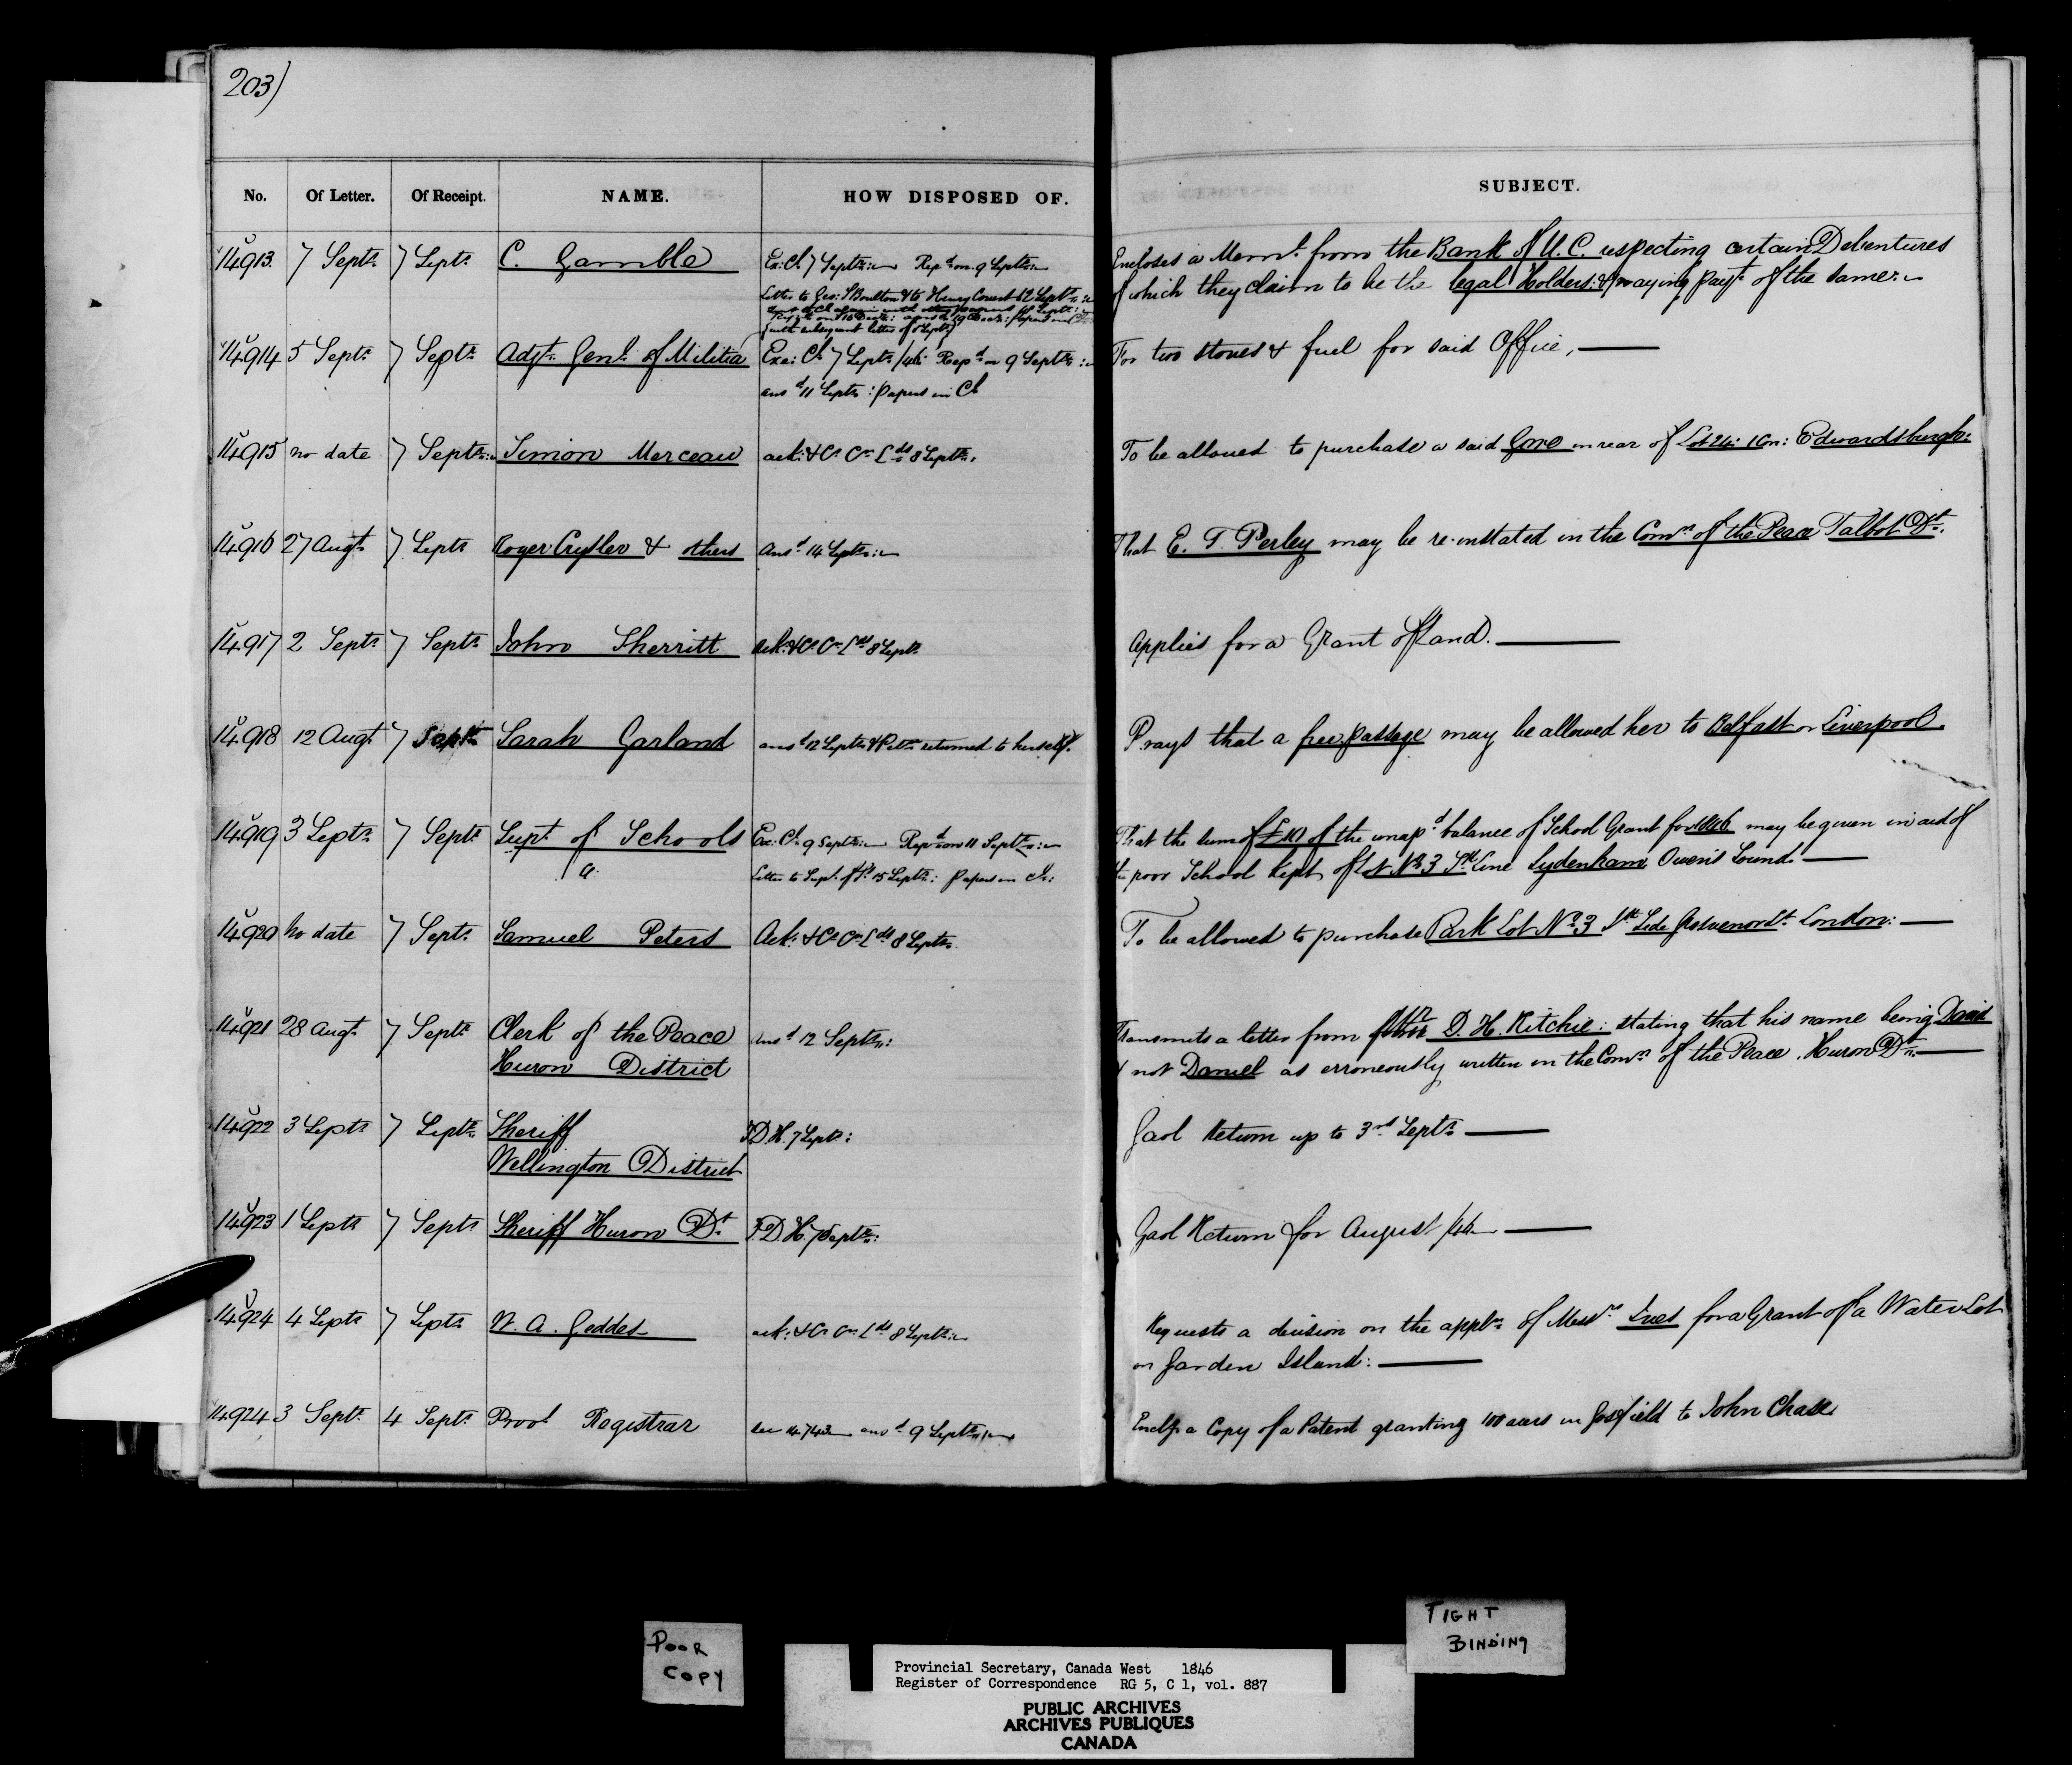 203)
No. Of Letter. Of Receipt. NAME. HOW DISPOSED OF. SUBJECT.
14913 7 Septr 7 Septr C. Gamble Ex: Cl 7 Septr: Repd on 9 Septr Encloses a Meml. from the Bank of U.C. respecting certain Debentures
Letter to Geo: S Boulton & to Henry 12 Septr of which they claim to be the legal Holders: & praying payt. of the same.
(with subsequent letter of 5 Septr)
14914 5 Septr 7 Septr Adjt. Genl. of Militia Exe: Cl 7 Septr /46: Repd on 9 Septr: For two stoves & fuel for said Office, —
ansd 11 Septr: Papers in Cl
14915 no date 7 Septr Simon Merceau ack: & Cr Cn Lds 8 Septr. To be allowed to purchase a said Gore in rear of Lot 24: 1 Con: Edwardsburgh:
14916 27 Augt. 7 Septr Roger Crysler & others Ansd 14 Septr: That E. T. Perley may be re-instated in the Comn of the Peace Talbot Dt.
14917 2 Septr 7 Septr John Sherritt Ack: & Cr Cn Lds 8 Septr Applies for a Grant of Land. —
14918 12 Augt 7 Septr Sarah Garland ansd 12 Septr & Petn returned to herself. Prays that a free passage may be allowed her to Belfast or Liverpool
14919 3 Septr 7 Septr Supt of Schools Exe: Cl 9 Septr: Repd on 11 Septr: That the sum of £10 of the unapd balance of School Grant for 1846 may be given in aid of
a Letter to Supt. of S. 15 Septr: Papers in Cl: the poor School kept of Lot No 3 Line Sydenham Owen's Sound. —
14920 no date 7 Septr Samuel Peters Ack: & Cr Cn Lds 8 Septr To be allowed to purchase Park Lot No. 3 Nth Side Grosvenor St. London: —
14921 28 Augt. 7 Septr Clerk of the Peace ansd 12 Septr: Transmits a letter from D. H. Ritchie: stating that his name being David
Huron District & not Daniel as erroneously written in the Comn of the Peace. Huron Dt. —
14922 3 Septr 7 Septr Sheriff F.D.H. 7 Septr: Gaol Return up to 3rd Septr —
Wellington District
14923 1 Septr 7 Septr Sheriff Huron Dt. F.D.H. 7 Septr: Gaol Return for August /46 —
14924 4 Septr 7 Septr W. A. Geddes ack: & Cr Cn Lds 8 Septr: Requests a decision on the appln of Messrs Ives for a Grant of a Water Lot
on Garden Island: —
14924 3 Septr 4 Septr Provl Registrar see 14743 ansd 9 Septr Encls a Copy of a Patent granting 100 acres in Gosfield to John Chase
POOR
COPY
TIGHT
BINDING
Provincial Secretary, Canada West 1846
Register of Correspondence RG 5, C 1, vol. 887
PUBLIC ARCHIVES
ARCHIVES PUBLIQUES
CANADA